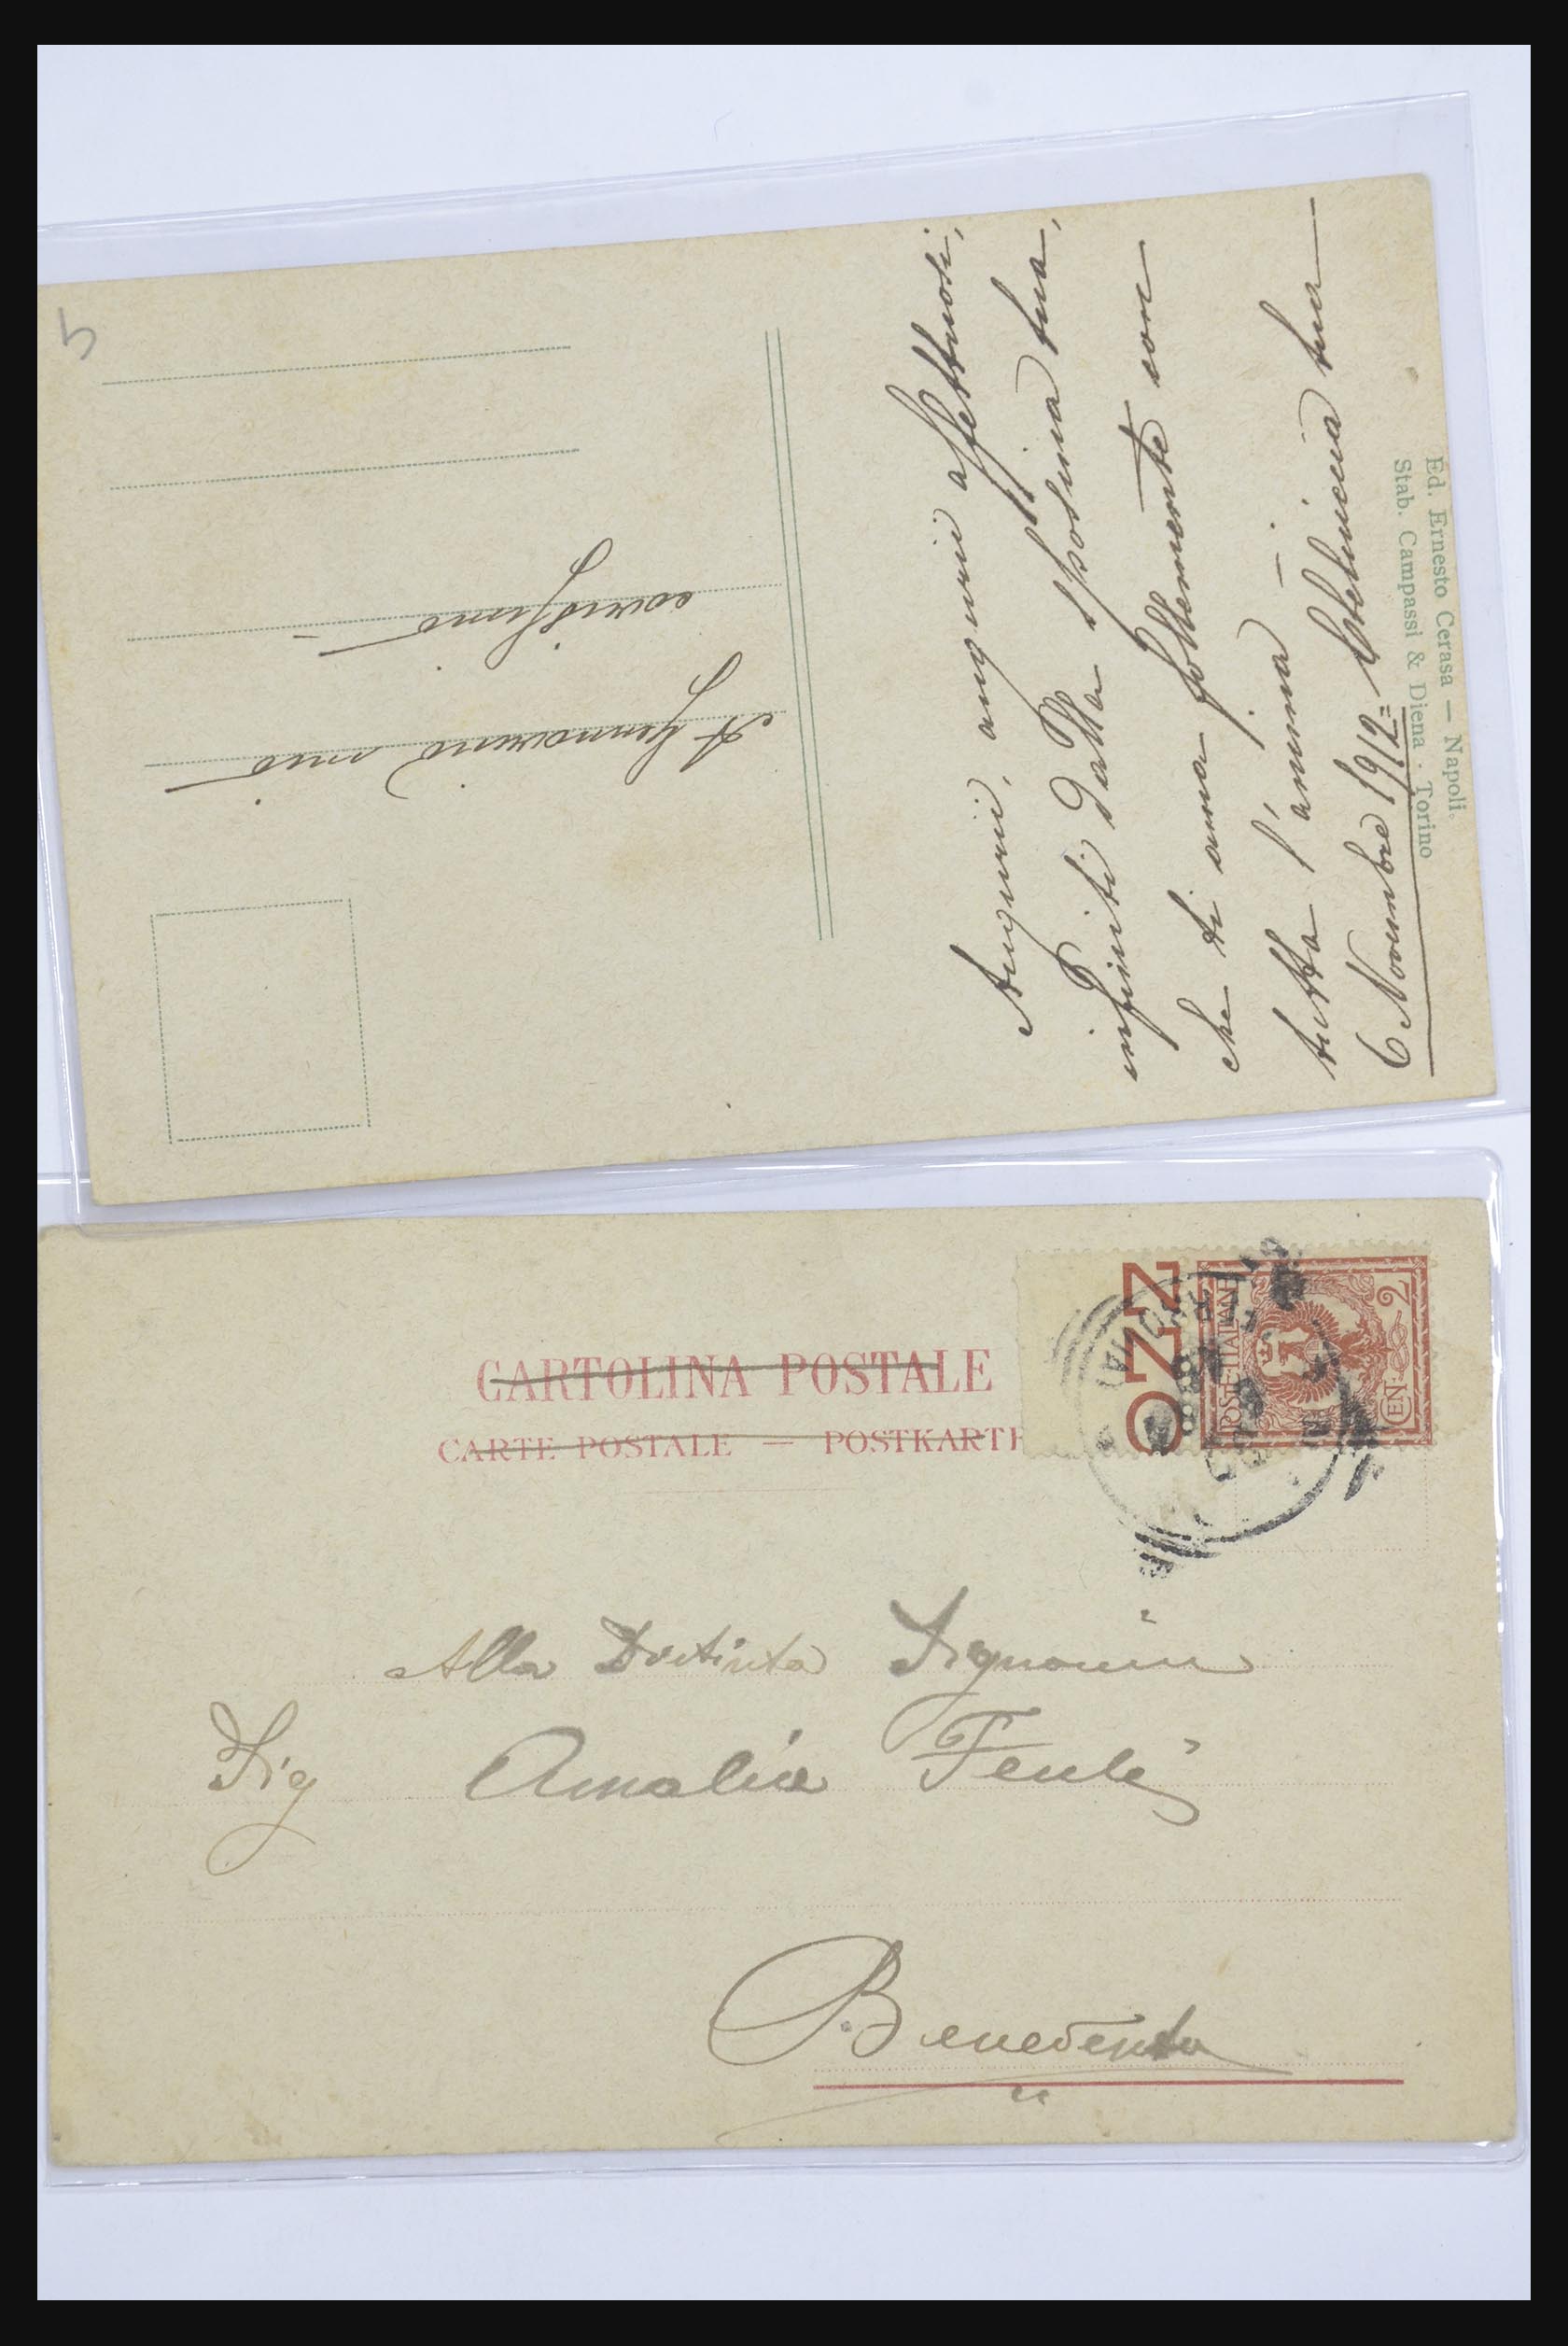 A Gennarino mio
carissimo
Auguri, auguri affettuosi,
infiniti dalla sposina tua,
che ti ama follemente con
tutta l'anima
6 Novembre 1912 = tua
Ed. Ernesto Cerasa — Napoli.
Stab. Campassi & Diena - Torino
CARTOLINA POSTALE
CARTE POSTALE — POSTKARTE
OZZ
POSTE ITALIANE
CEN. 2
Alla Distinta Signorina
Sig Amalia
Benevento